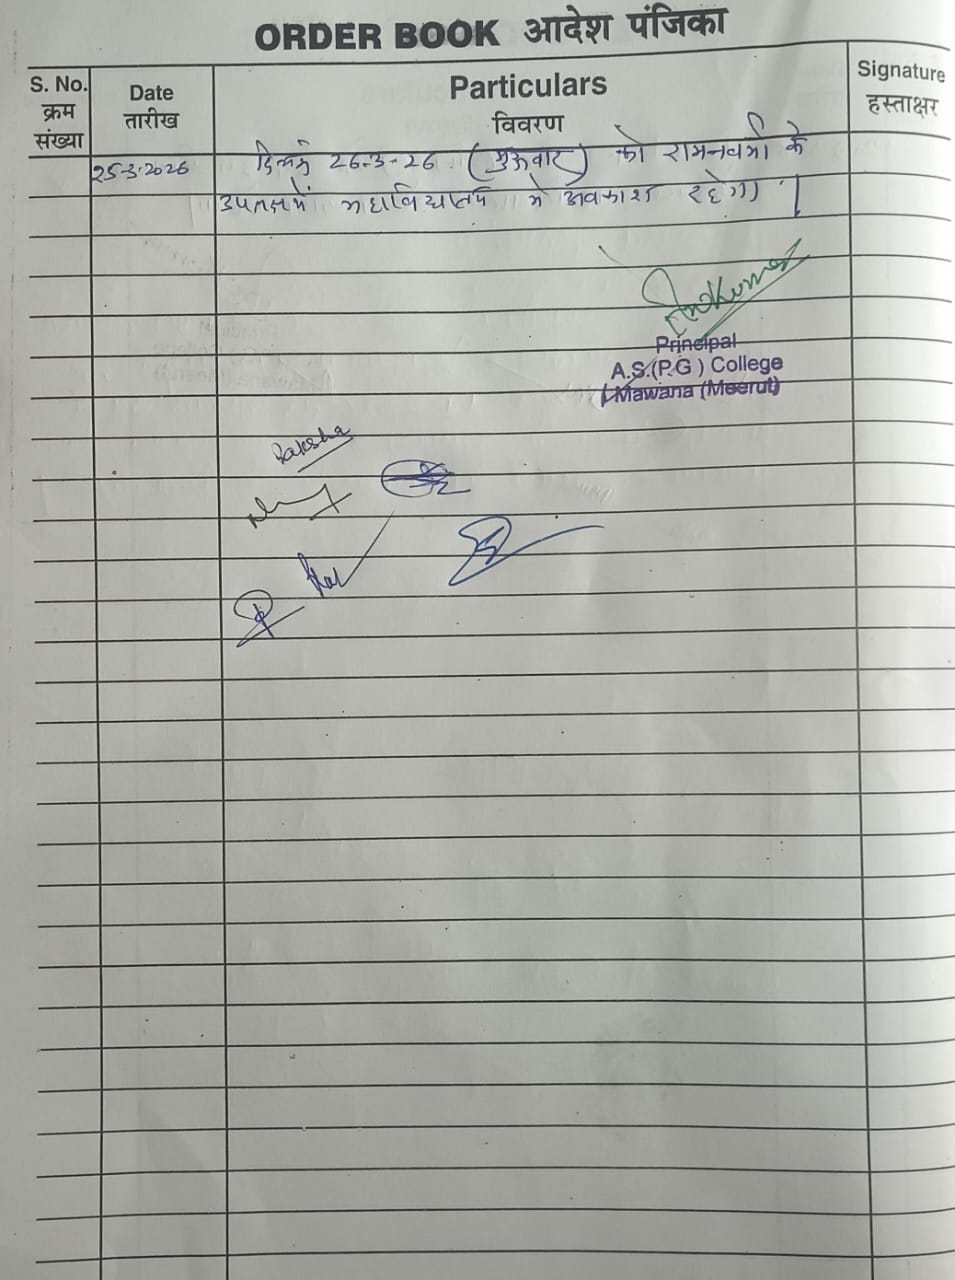 ORDER BOOK आदेश पंजिका
S. No. क्रम संख्या
Date तारीख
Particulars विवरण
Signature हस्ताक्षर
25-3-2026 26-3-26 को रामनवमी के
उपलक्ष में महाविद्यालय में अवकाश रहेगा।
Principal
A.S.(P.G) College
Mawana (Meerut)
Raksha